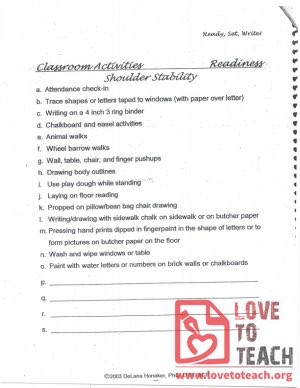 Ready, Set, Write!
Classroom Activities Readiness
Shoulder Stability
a. Attendance check-in
b. Trace shapes or letters taped to windows (with paper over letter)
c. Writing on a 4 inch 3 ring binder
d. Chalkboard and easel activities
e. Animal walks
f. Wheel barrow walks
g. Wall, table, chair, and finger pushups
h. Drawing body outlines
i. Use play dough while standing
j. Laying on floor reading
k. Propped on pillow/bean bag chair drawing
l. Writing/drawing with sidewalk chalk on sidewalk or on butcher paper
m. Pressing hand prints dipped in fingerpaint in the shape of letters or to
form pictures on butcher paper on the floor
n. Wash and wipe windows or table
o. Paint with water letters or numbers on brick walls or chalkboards
p.
q.
r.
s.
LOVE
TO
TEACH
©2003 DeLana Honaker,
www.lovetoteach.org